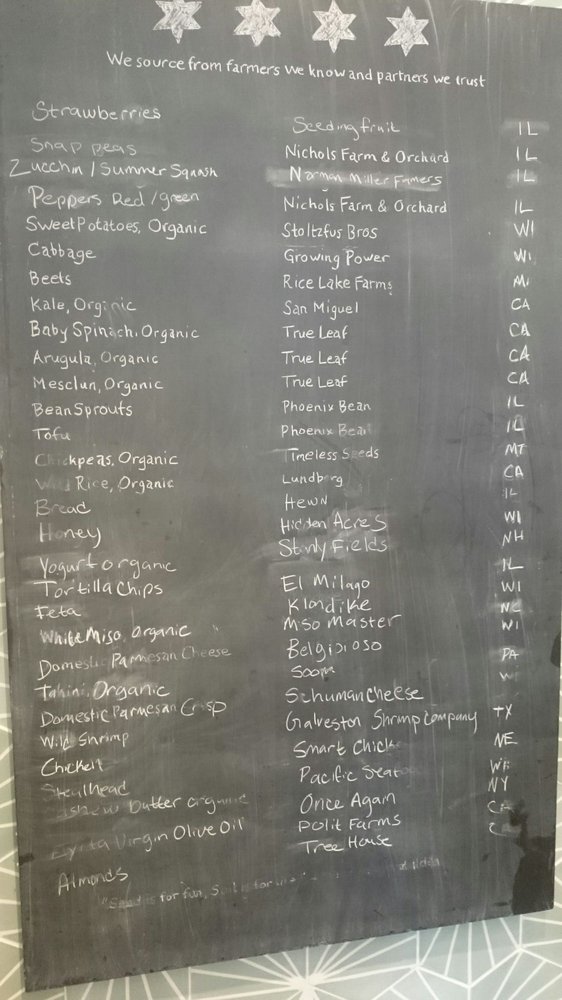 We source from farmers we know and partners we trust
Strawberries Seedling fruit IL
Snap peas Nichols Farm & Orchard IL
Zucchin / Summer Squash Norman Miller Famers IL
Peppers Red / green Nichols Farm & Orchard IL
Sweet Potatoes, Organic Stoltzfus Bros WI
Cabbage Growing Power WI
Beets Rice Lake Farms MI
Kale, Organic San Miguel CA
Baby Spinach, Organic True Leaf CA
Arugula, Organic True Leaf CA
Mesclun, Organic True Leaf CA
Bean Sprouts Phoenix Bean IL
Tofu Phoenix Bean IL
Chickpeas, Organic Timeless Seeds MT
Wild Rice, Organic Lundberg CA
Bread Hewn IL
Honey Hidden Acres WI
Yogurt organic Stonly Fields NH
Tortilla Chips El Milago IL
Feta Klondike WI
White Miso, Organic Miso Master NC
Domestic Parmesan Cheese Belgioioso WI
Tahini, Organic Soom PA
Domestic Parmesan Crisp Schuman Cheese W
Wild Shrimp Galveston Shrimp Company TX
Chicken Smart Chick NE
Steelhead Pacific Seafoo
Butter organic Once Again NY
Virgin Olive Oil Polit Farms CA
Almonds Tree House CA
is for fun,